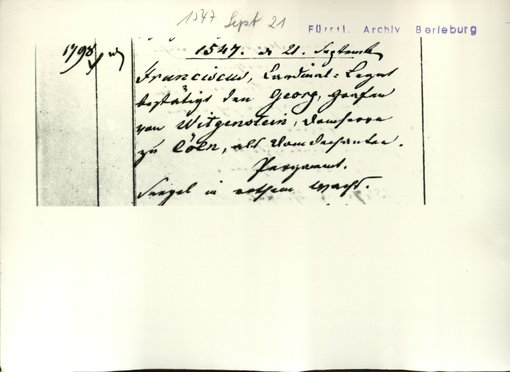 1547 Sept 21
Fürstl. Archiv Berleburg
1798
1547. d 21. September
Franciscus, Cardinal-Legat
bestätigt den Georg, Grafen
von Witgenstein, Domherrn
zu Cöln, als Domdechanten.
Pergament.
Siegel in rothem Wachs.